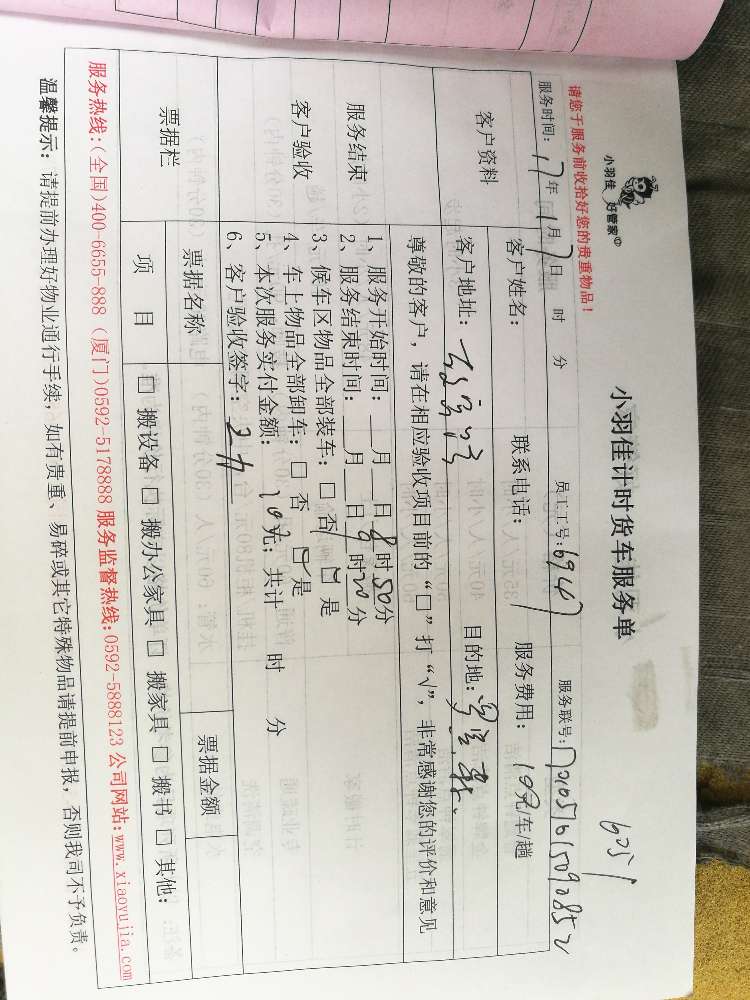 小羽佳 好管家
小羽佳计时货车服务单
6251
请您于服务前收拾好您的贵重物品！
服务时间：17年1月7日 时 分 员工工号：6947 服务联号：
客户资料
客户姓名： 联系电话： 服务费用： 元/车/趟
客户地址： 目的地：
尊敬的客户，请在相应验收项目前的“□”打“√”，非常感谢您的评价和意见
服务结束
客户验收
1、服务开始时间：__月__日8时50分
2、服务结束时间：__月__日9时20分
3、候车区物品全部装车：□否 □是
4、车上物品全部卸车：□否 □是
5、本次服务实付金额： 元；共计 时 分
6、客户验收签字：
票据栏
票据名称 票据金额
项 目 □搬设备 □搬办公家具 □搬家具 □搬书 □其他：
服务热线：(全国)400-6655-888 (厦门)0592-5178888 服务监督热线：0592-5888123 公司网站：www.xiaoyujia.com
温馨提示：请提前办理好物业通行手续，如有贵重、易碎或其它特殊物品请提前申报，否则我司不予负责。